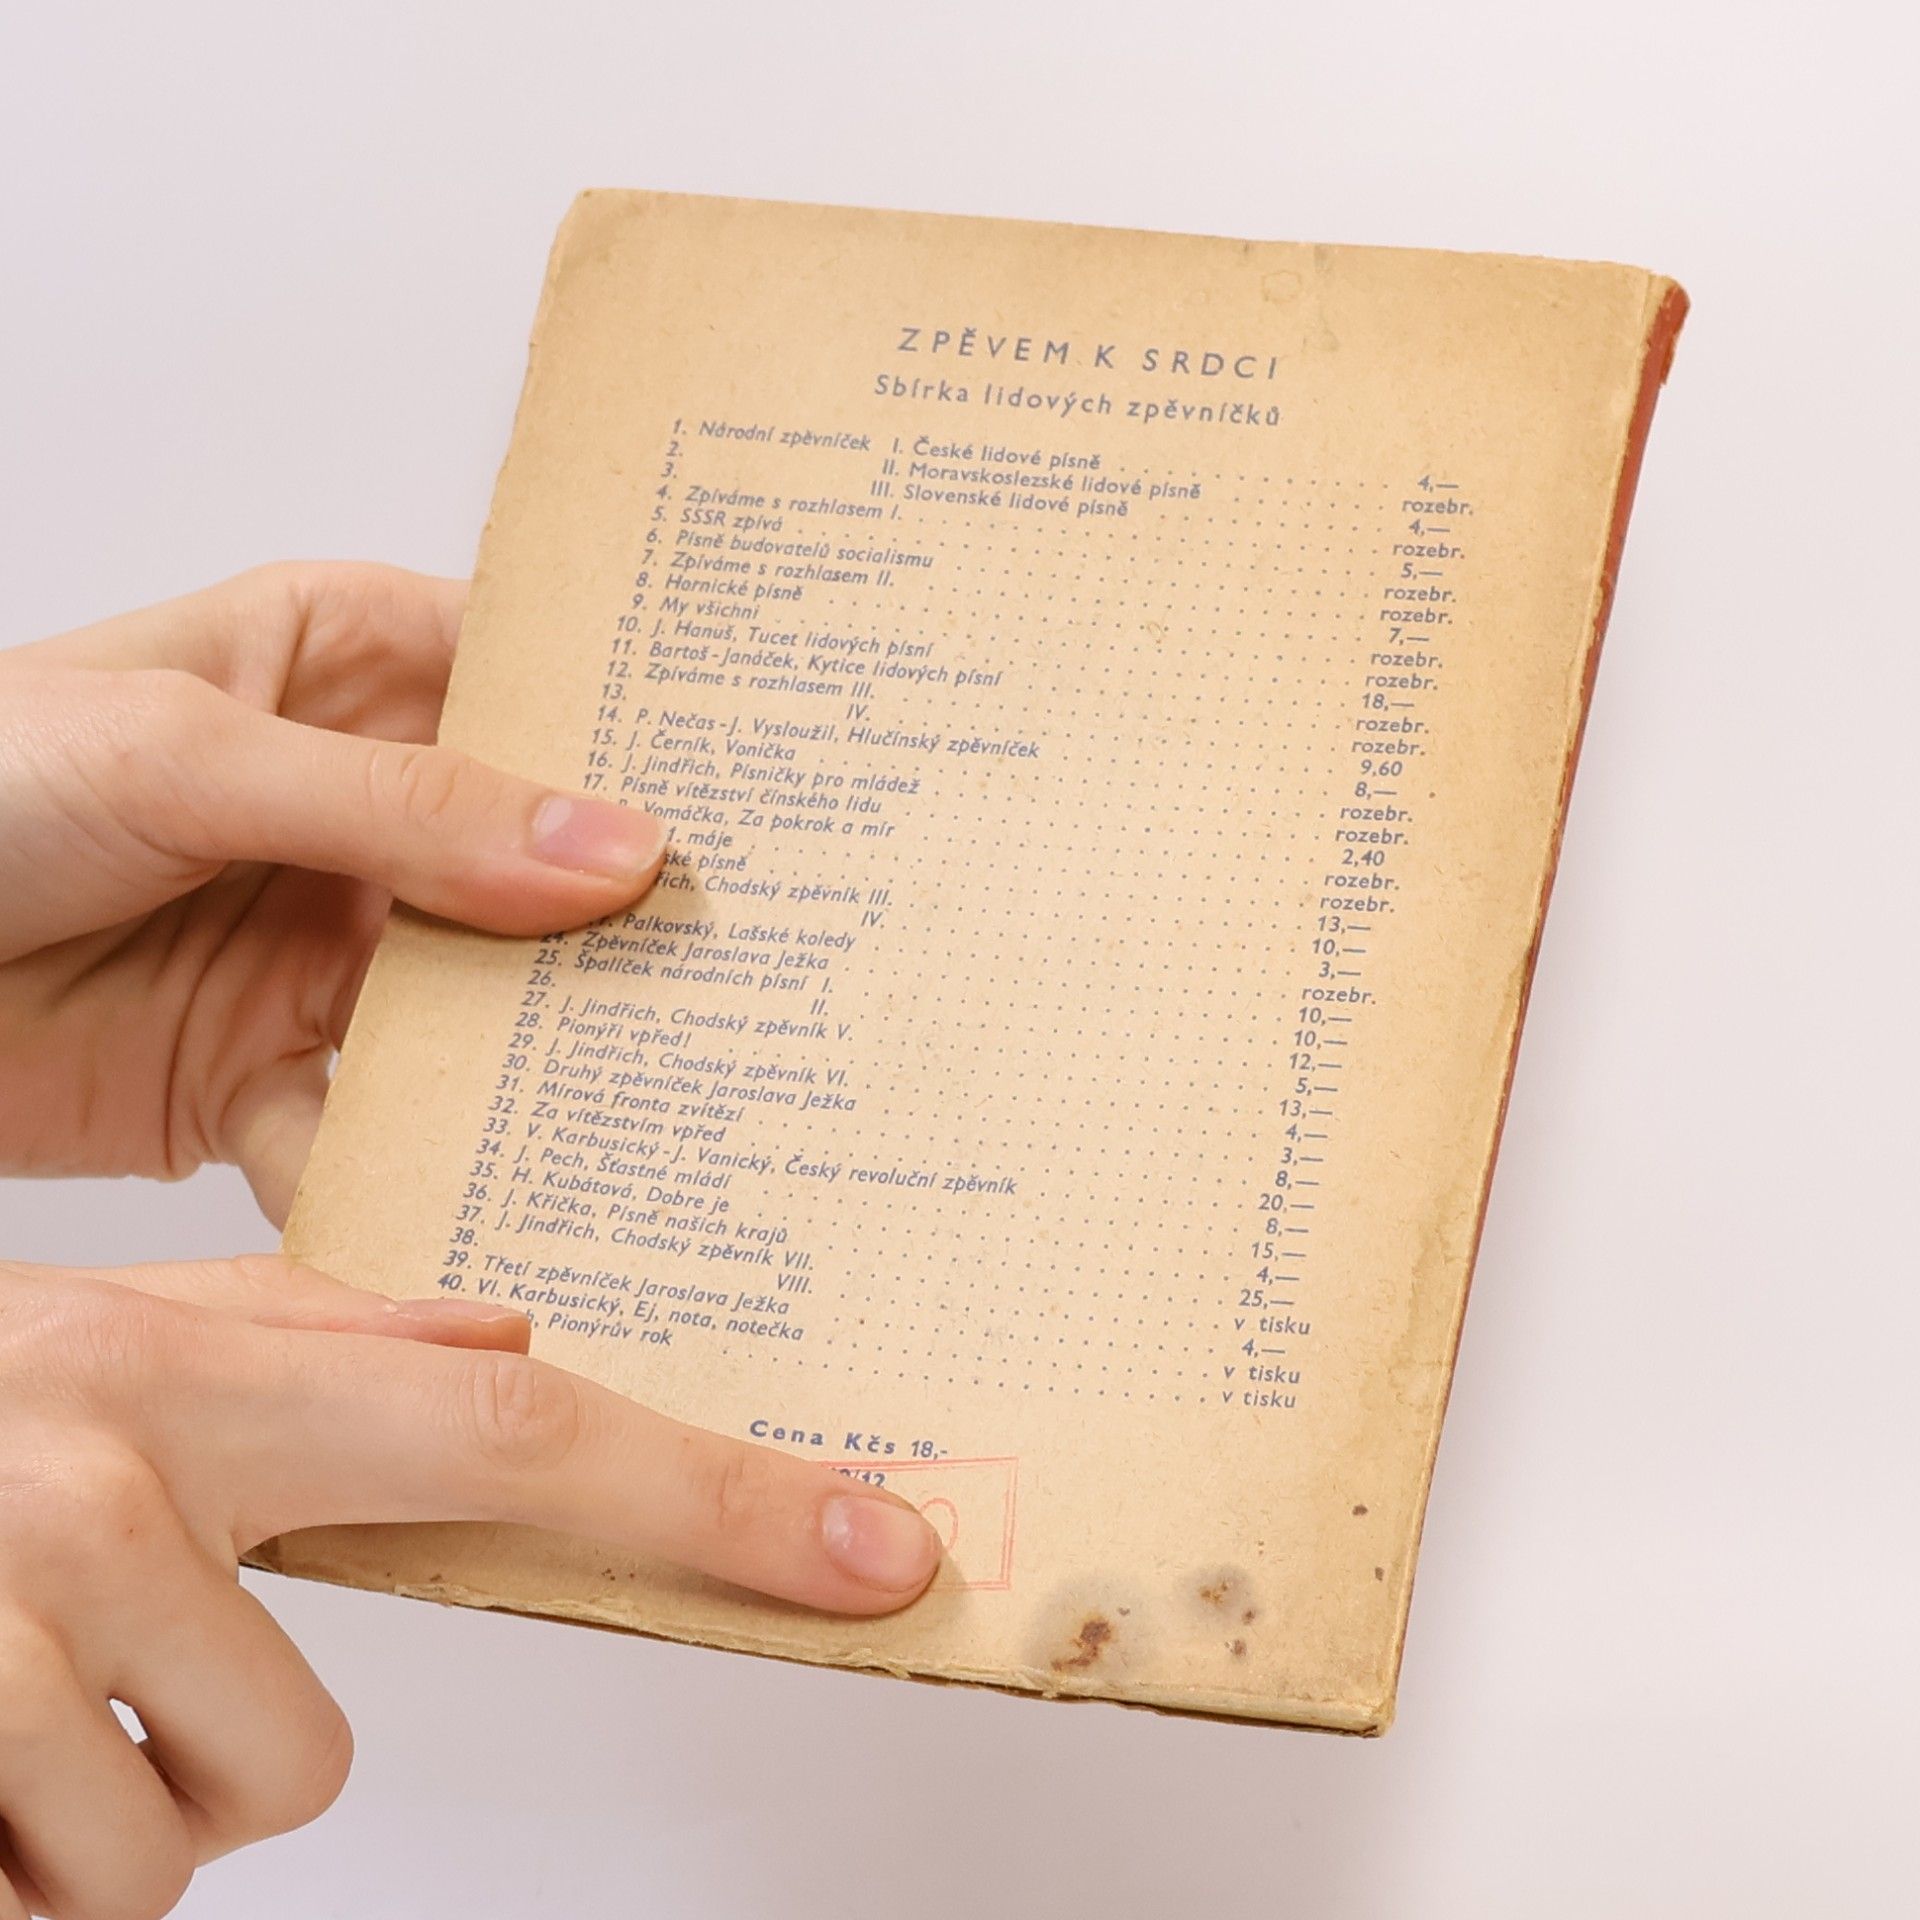 ZPĚVEM K SRDCI
Sbírka lidových zpěvníčků
1. Národní zpěvníček I. České lidové písně . . . . . . . . . . 4,—
2. II. Moravskoslezské lidové písně . . . . . . rozebr.
3. III. Slovenské lidové písně . . . . . . . . . 4,—
4. Zpíváme s rozhlasem I. . . . . . . . . . . rozebr.
5. SSSR zpívá . . . . . . . . . . 5,—
6. Písně budovatelů socialismu . . . . . . . . . . rozebr.
7. Zpíváme s rozhlasem II. . . . . . . . . . . rozebr.
8. Hornické písně . . . . . . . . . . 7,—
9. My všichni . . . . . . . . . . rozebr.
10. J. Hanuš, Tucet lidových písní . . . . . . . . . . rozebr.
11. Bartoš-Janáček, Kytice lidových písní . . . . . . . . . . 18,—
12. Zpíváme s rozhlasem III. . . . . . . . . . . rozebr.
13. IV. . . . . . . . . . . rozebr.
14. P. Nečas-J. Vysloužil, Hlučínský zpěvníček . . . . . . . . . . 9,60
15. J. Černík, Vonička . . . . . . . . . . 8,—
16. J. Jindřich, Písničky pro mládež . . . . . . . . . . rozebr.
17. Písně vítězství čínského lidu . . . . . . . . . . rozebr.
Vomáčka, Za pokrok a mír . . . . . . . . . . 2,40
1. máje . . . . . . . . . . rozebr.
ské písně . . . . . . . . . . rozebr.
řich, Chodský zpěvník III. . . . . . . . . . . 13,—
IV. . . . . . . . . . . 10,—
Palkovský, Lašské koledy . . . . . . . . . . 3,—
24. Zpěvníček Jaroslava Ježka . . . . . . . . . . rozebr.
25. Špalíček národních písní I. . . . . . . . . . . 10,—
26. II. . . . . . . . . . . 10,—
27. J. Jindřich, Chodský zpěvník V. . . . . . . . . . . 12,—
28. Pionýři vpřed! . . . . . . . . . . 5,—
29. J. Jindřich, Chodský zpěvník VI. . . . . . . . . . . 13,—
30. Druhý zpěvníček Jaroslava Ježka . . . . . . . . . . 4,—
31. Mírová fronta zvítězí . . . . . . . . . . 3,—
32. Za vítězstvím vpřed . . . . . . . . . . 8,—
33. V. Karbusický-J. Vanický, Český revoluční zpěvník . . . . . . . . 20,—
34. J. Pech, Šťastné mládí . . . . . . . . . . 8,—
35. H. Kubátová, Dobre je . . . . . . . . . . 15,—
36. J. Křička, Písně našich krajů . . . . . . . . . . 4,—
37. J. Jindřich, Chodský zpěvník VII. . . . . . . . . . . 25,—
38. VIII. . . . . . . . . . . v tisku
39. Třetí zpěvníček Jaroslava Ježka . . . . . . . . . . 4,—
40. Vl. Karbusický, Ej, nota, notečka . . . . . . . . . . v tisku
h, Pionýrův rok . . . . . . . . . . v tisku
Cena Kčs 18,-
/12